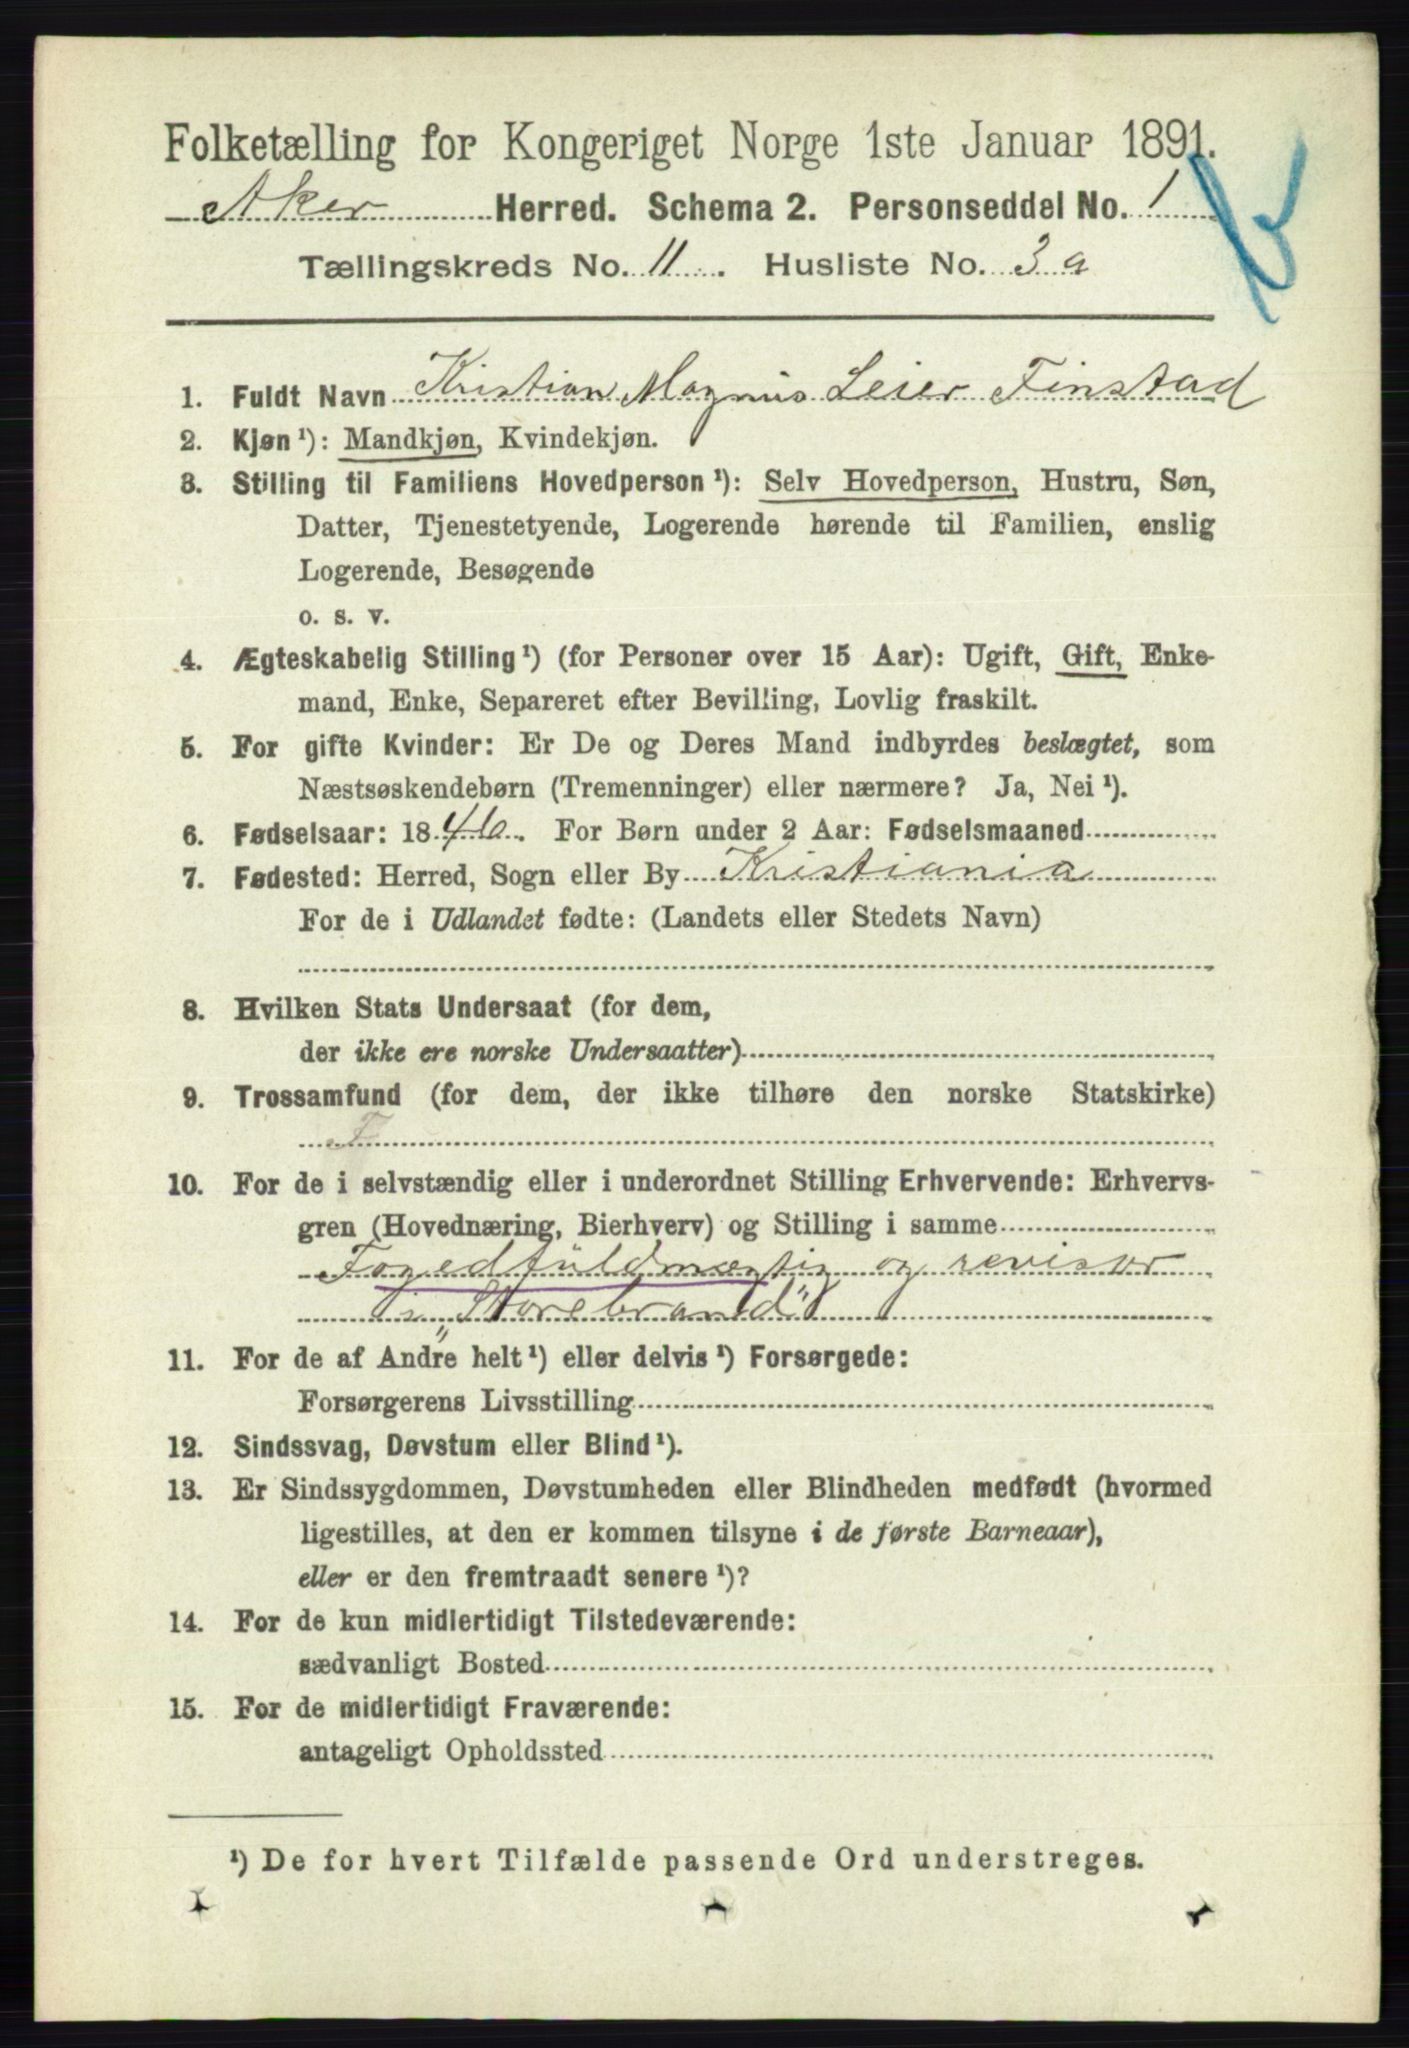 Folketælling for Kongeriget Norge 1ste Januar 1891.
Aker Herred. Schema 2. Personseddel No. 1
Tællingskreds No. 11. Husliste No. 3 a
1. Fuldt Navn Kristian Magnus Leier Finstad
2. Kjøn ¹): Mandkjøn, Kvindekjøn.
3. Stilling til Familiens Hovedperson ¹): Selv Hovedperson, Hustru, Søn,
Datter, Tjenestetyende, Logerende hørende til Familien, enslig
Logerende, Besøgende
o. s. v.
4. Ægteskabelig Stilling ¹) (for Personer over 15 Aar): Ugift, Gift, Enke-
mand, Enke, Separeret efter Bevilling, Lovlig fraskilt.
5. For gifte Kvinder: Er De og Deres Mand indbyrdes beslægtet, som
Næstsøskendebørn (Tremenninger) eller nærmere? Ja, Nei ¹).
6. Fødselsaar: 1846. For Børn under 2 Aar: Fødselsmaaned
7. Fødested: Herred, Sogn eller By Kristiania
For de i Udlandet fødte: (Landets eller Stedets Navn)
8. Hvilken Stats Undersaat (for dem,
der ikke ere norske Undersaatter)
9. Trossamfund (for dem, der ikke tilhøre den norske Statskirke)
F
10. For de i selvstændig eller i underordnet Stilling Erhvervende: Erhvervs-
gren (Hovednæring, Bierhverv) og Stilling i samme
Fogedfuldmægtig og revisor
i „Storebrand"
11. For de af Andre helt ¹) eller delvis ¹) Forsørgede:
Forsørgerens Livsstilling
12. Sindssvag, Døvstum eller Blind ¹).
13. Er Sindssygdommen, Døvstumheden eller Blindheden medfødt (hvormed
ligestilles, at den er kommen tilsyne i de første Barneaar),
eller er den fremtraadt senere ¹)?
14. For de kun midlertidigt Tilstedeværende:
sædvanligt Bosted
15. For de midlertidigt Fraværende:
antageligt Opholdssted
¹) De for hvert Tilfælde passende Ord understreges.